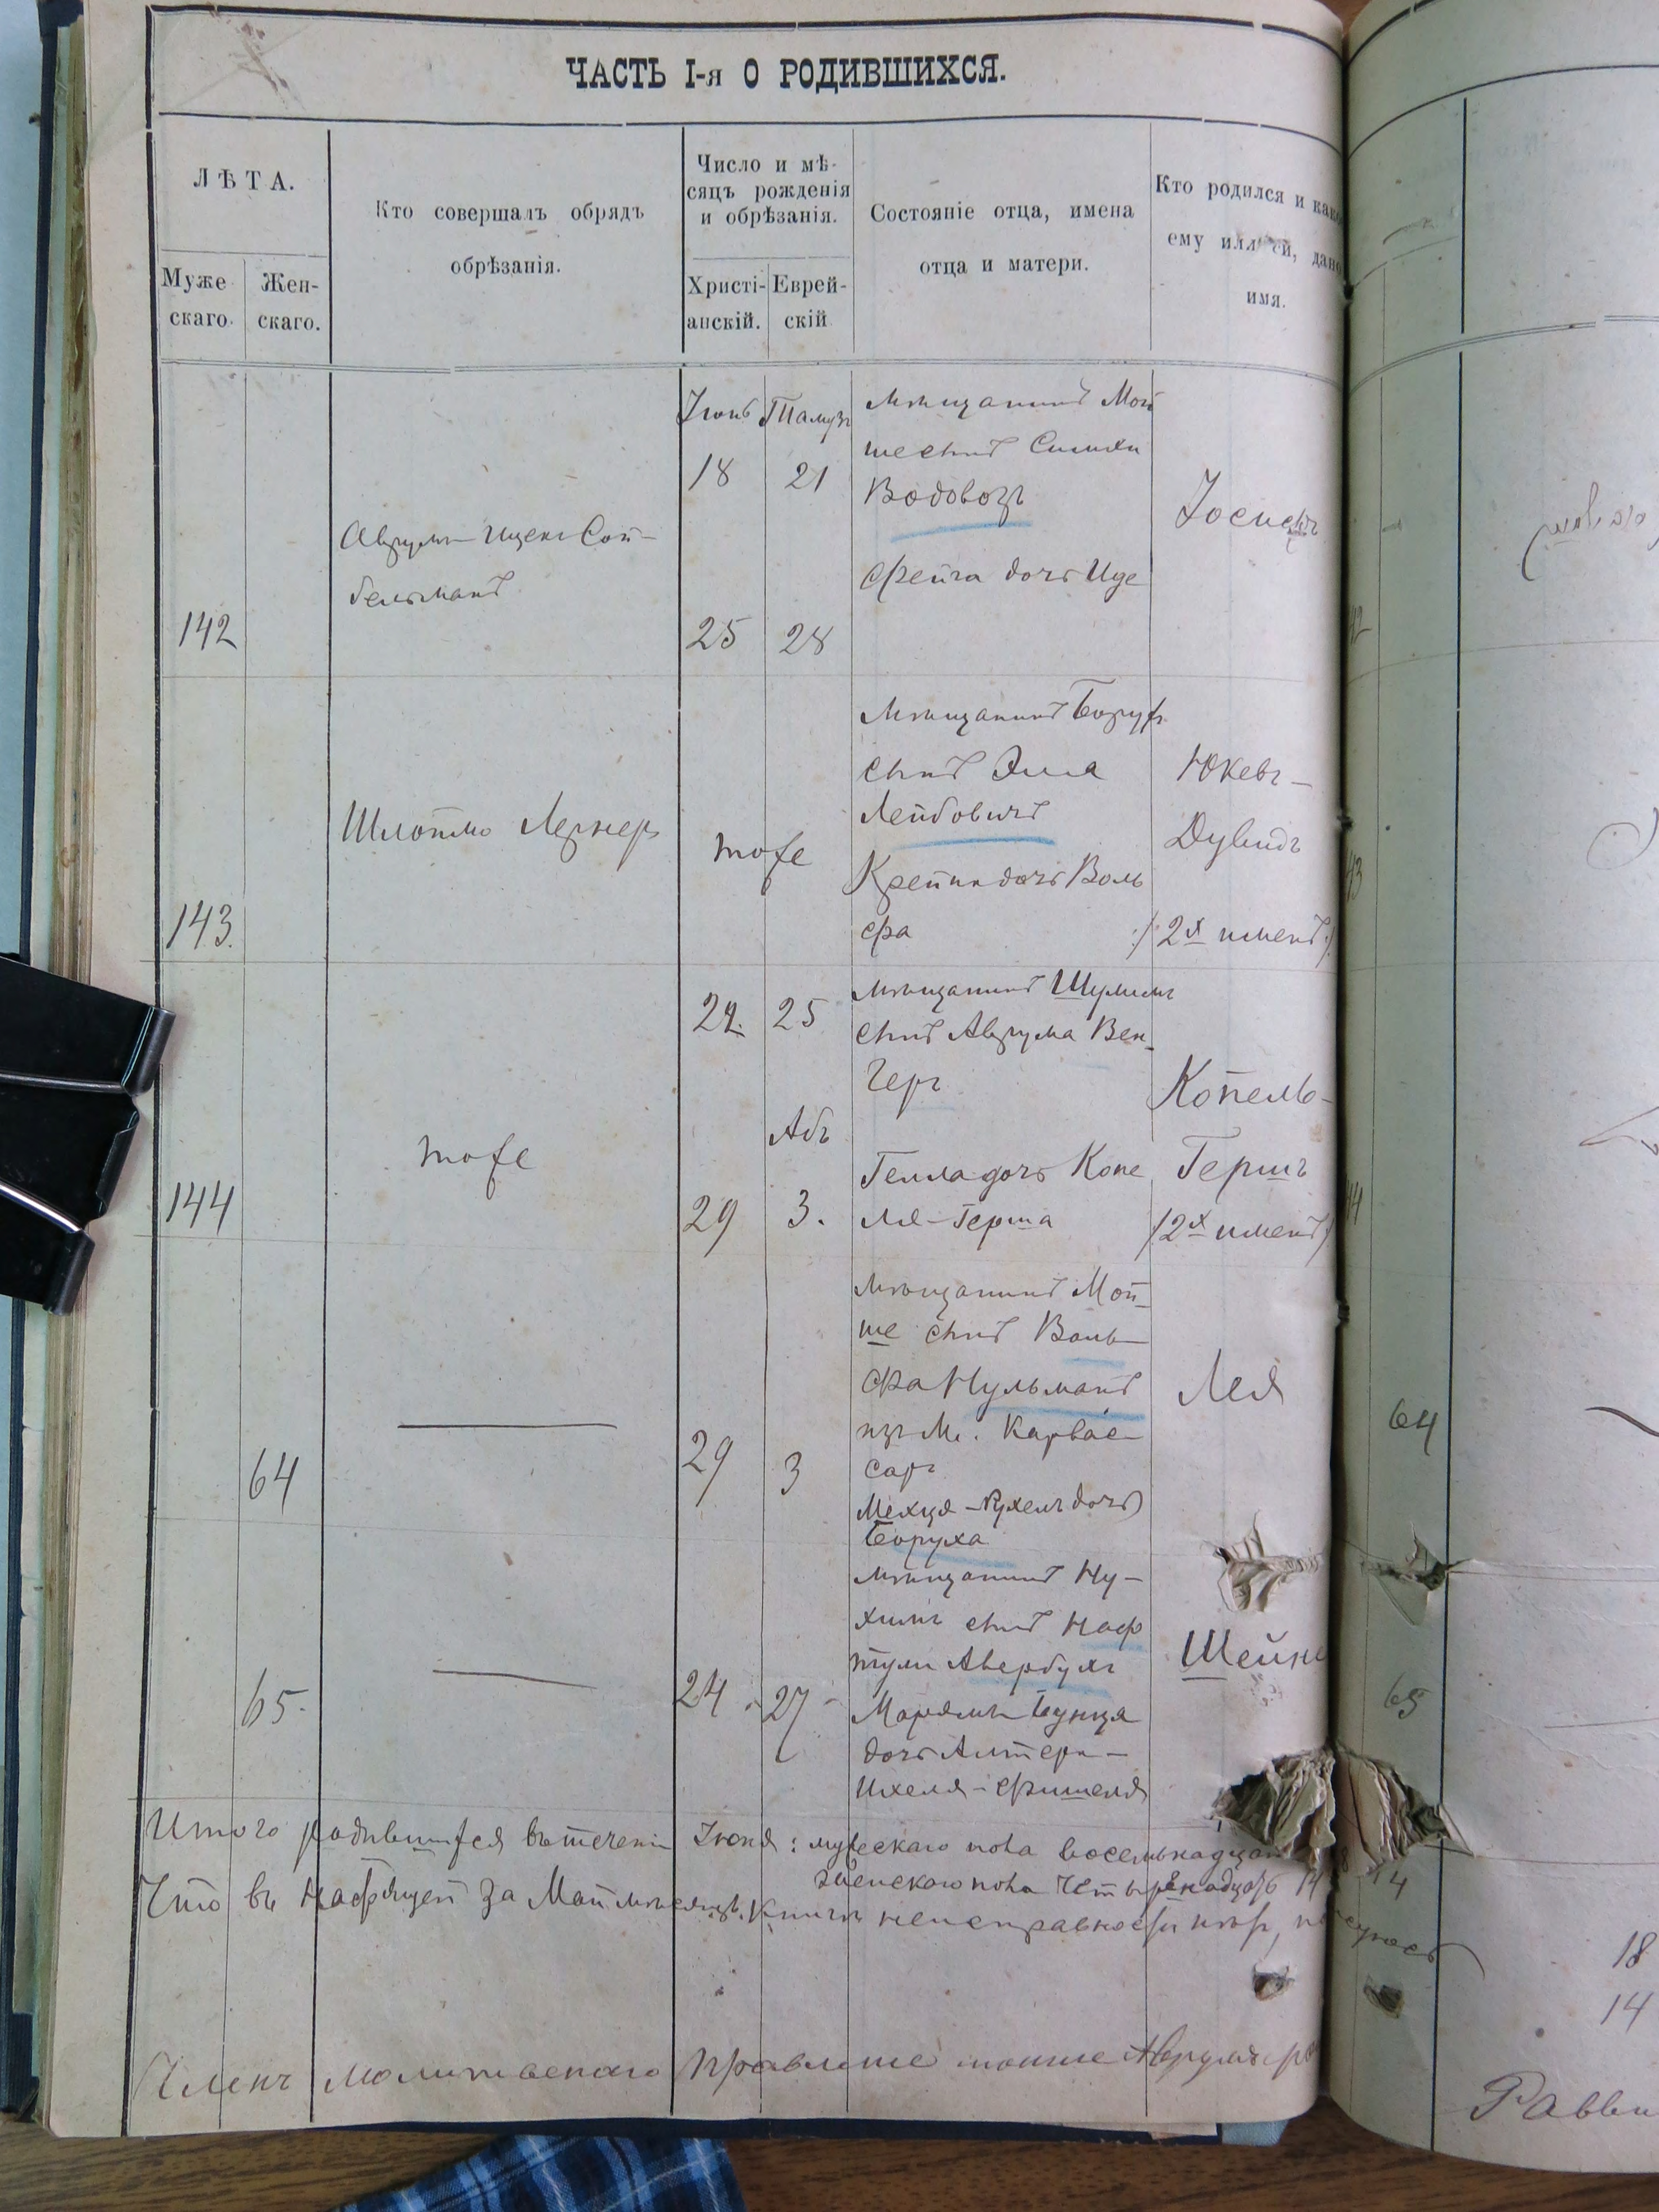 ЧАСТЬ I-я О РОДИВШИХСЯ.
ЛѢТА.
Муже
скаго.
Жен-
скаго.
Кто совершалъ обрядъ
обрѣзанія.
Число и мѣ-
сяцъ рожденія
и обрѣзанія.
Христі-
анскій.
Еврей-
скій
Состояніе отца, имена
отца и матери.
Кто родился и како
ему или ей, дано
имя.
142
Аврумъ-Ицекъ Сой-
бельманъ
Іюнь
18
25
Тамузъ
21
28
мѣщанинъ Мой
ше сынъ Симхи
Водовозъ
Фейга дочь Иде
Іосифъ
143.
Шлоймо Лернеръ
тоже
мѣщанинъ Борухъ
сынъ Эля
Лейбовичъ
Крейня дочь Воль
фа
Юкевъ-
Дувидъ
/2х именъ/
144
тоже
22.
29
25
Абъ
3.
мѣщанинъ Шулимъ
сынъ Аврума Вен-
геръ
Гелла дочь Копе
ля-Герша
Копель-
Гершъ
/2х именъ/
64
29
3
мѣщанинъ Мой-
ше сынъ Воль-
фа Нульманъ
изъ М. Карвас-
саръ
Мехця-Рухель дочь
Боруха
Лея
65.
24
27
мѣщанинъ Ну-
химъ сынъ Наф
тули Авербухъ
Марямъ Бунця
дочь Алтера-
Ихеля-Фишеля
Шейне
Итого родившихся въ теченіи Іюня: мужескаго пола восемьнадцать 18
женскаго пола четырнадцать 14
Что въ настоящей за Май мѣсяцъ книгѣ неисправности нѣтъ,
Членъ молитвенного правленія
64
65
18
14
Равви